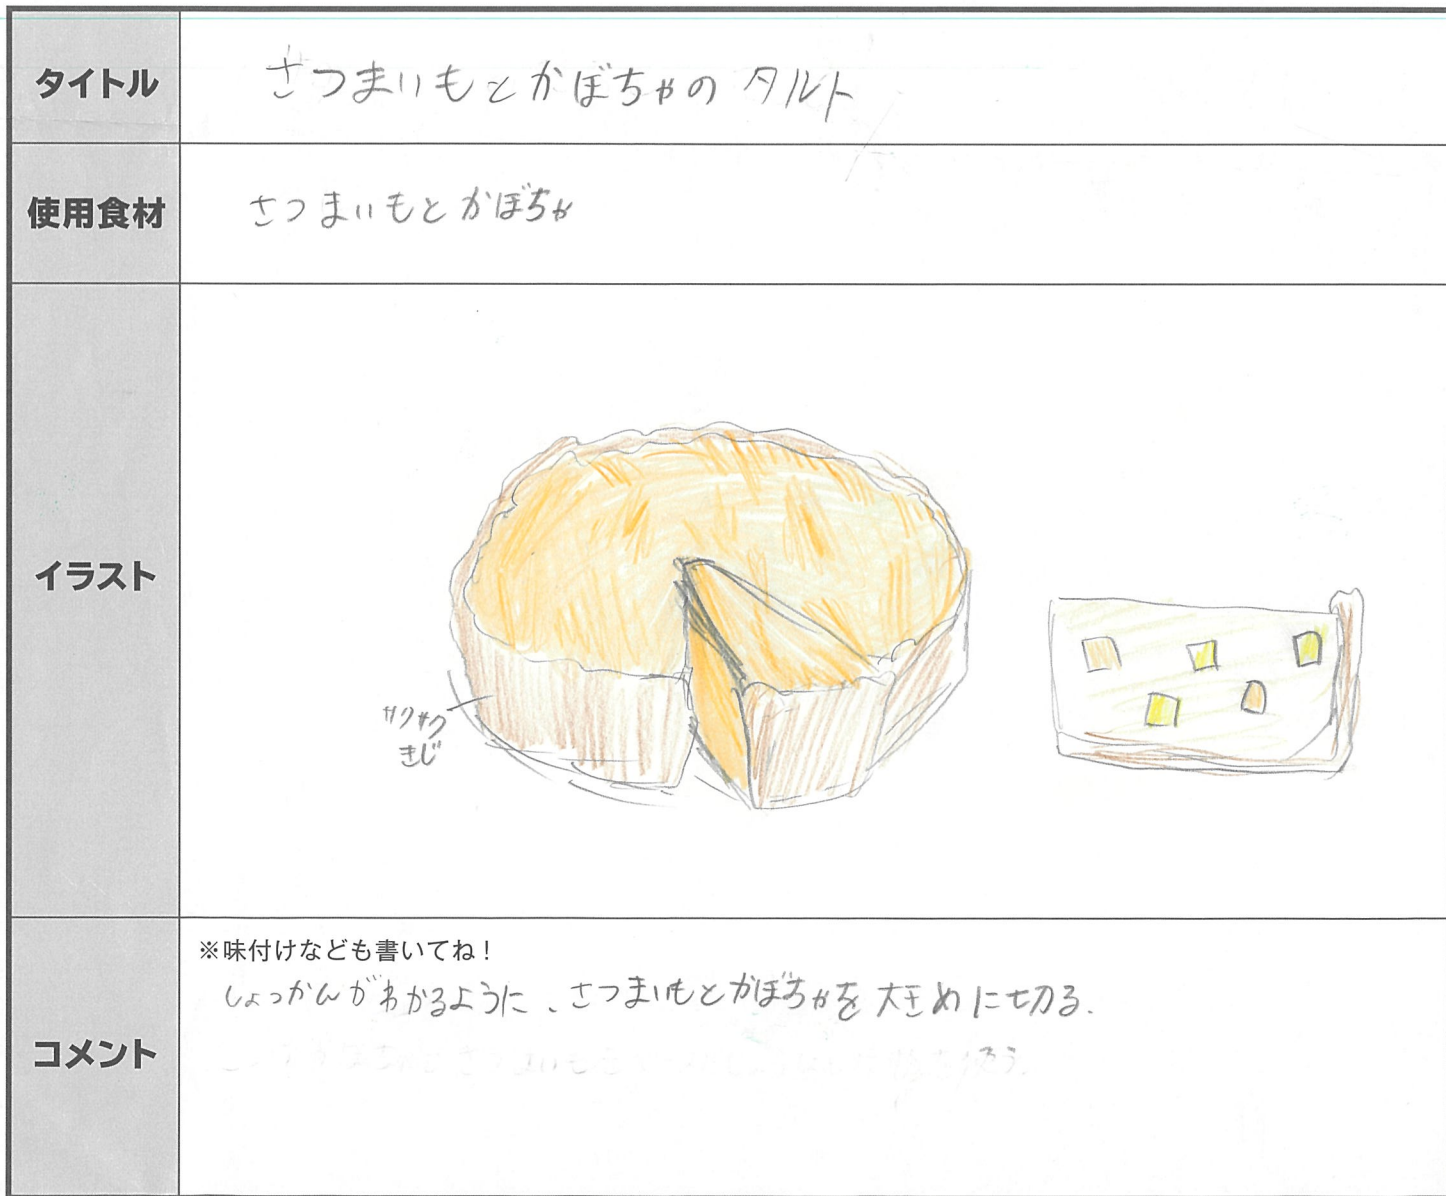 タイトル
さつまいもとかぼちゃのタルト
使用食材
さつまいもとかぼちゃ
イラスト
サクサク
きじ
コメント
※味付けなども書いてね！
しょっかんがわかるように、さつまいもとかぼちゃを大きめに切る.